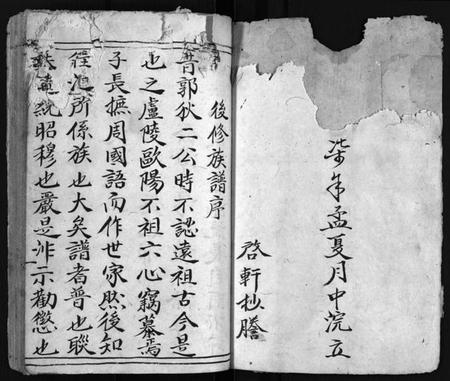 柒年孟夏月中浣立
啓軒抄謄
後修族譜序
昔郭狄二公時不認遠祖古今是
也之盧陵歐陽不祖六心竊慕焉
子長摭周國語而作世家然後知
所係族也大矣譜者普也聯
統昭穆也嚴是非示勸懲也